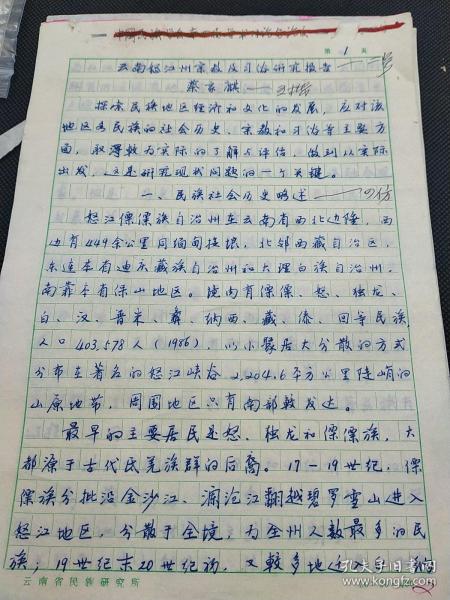 第 1 页
云南怒江州宗教及习俗研究报告
蔡家麒
探索民族地区经济和文化的发展，应对该
地区各民族的社会历史、宗教和习俗等主要方
面，取得较为实际的了解与评估，做到从实际
出发，这是研究现代问题的一个关键。
一、民族社会历史略述
怒江傈僳族自治州在云南省西北边陲，西
边有449余公里同缅甸接壤，北邻西藏自治区，
东连本省迪庆藏族自治州和大理白族自治州，
南靠本省保山地区。境内有傈僳、怒、独龙、
白、汉、普米、彝、纳西、藏、傣、回等民族，
人口403,578人（1986），以小聚居大分散的方式
分布在著名的怒江峡谷2,204.6平方公里陡峭的
山原地带，周围地区只有南部较发达。
最早的主要居民是怒、独龙和傈僳族，大
都源于古代氐羌族群的后裔。17—19世纪，傈
僳族分批沿金沙江、澜沧江翻越碧罗雪山进入
怒江地区，分散于全境，为全州人数最多的民
族；19世纪末20世纪初，又较多地迁入
云南省民族研究所
孔夫子旧书网